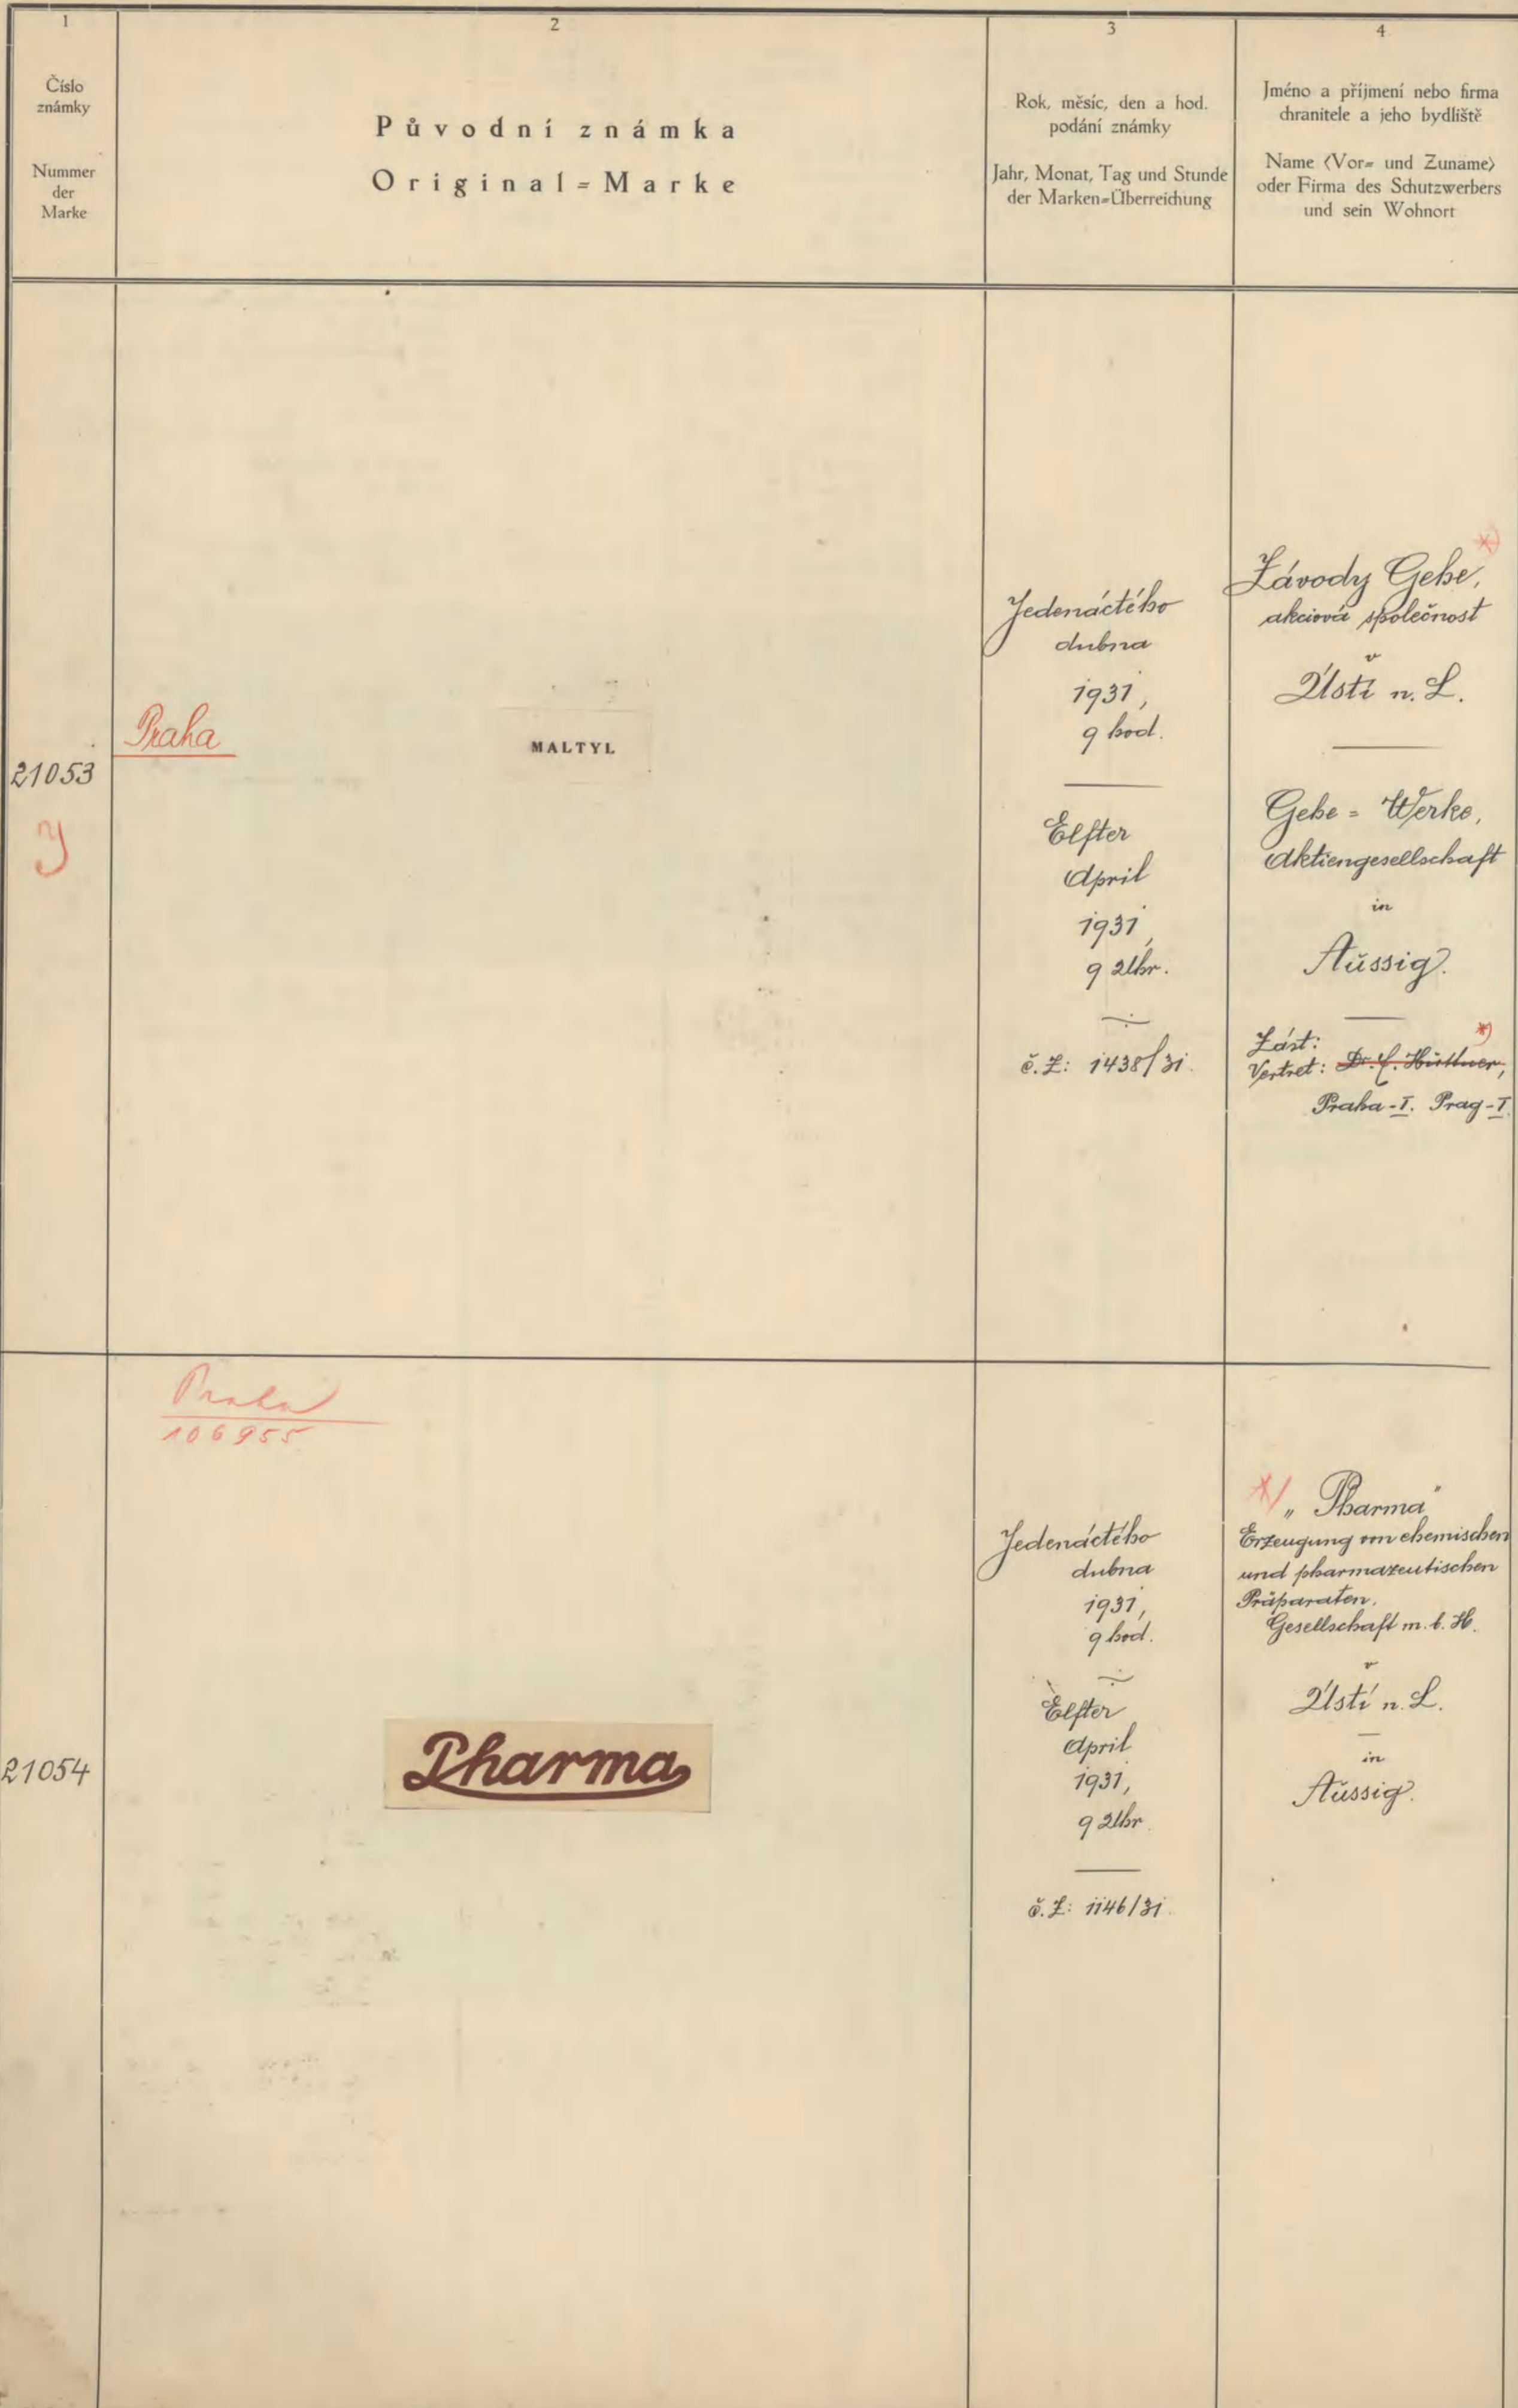 1
Číslo
známky
Nummer
der
Marke
2
Původní známka
Original=Marke
3
Rok, měsíc, den a hod.
podání známky
Jahr, Monat, Tag und Stunde
der Marken=Überreichung
4
Jméno a příjmení nebo firma
chranitele a jeho bydliště
Name (Vor= und Zuname)
oder Firma des Schutzwerbers
und sein Wohnort
21053
Praha
MALTYL
Jedenáctého
dubna
1931,
9 hod.
Elfter
April
1931,
9 Uhr.
č. Z: 1438/31.
*)
Závody Gehe,
akciová společnost
v
Ústí n. L.
Gehe = Werke,
Aktiengesellschaft
in
Aussig.
*)
Zást:
Vertret: Dr. Hüttner,
Praha-I. Prag-I.
21054
Praha
106955
Pharma
Jedenáctého
dubna
1931,
9 hod.
Elfter
April
1931,
9 Uhr.
č. Z: 1146/31.
*/ „Pharma"
Erzeugung von chemischen
und pharmazeutischen
Präparaten,
Gesellschaft m. b. H.
v
Ústí n. L.
in
Aussig.